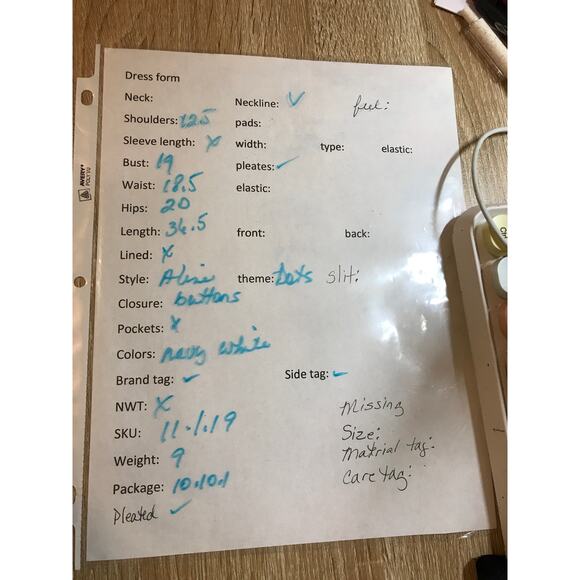 Dress form
Neck: Neckline: V feel:
Shoulders: 12.5 pads:
Sleeve length: X width: type: elastic:
Bust: 19 pleates: ✓
Waist: 18.5 elastic:
Hips: 20
Length: 36.5 front: back:
Lined: X
Style: Aline theme: Dots slit:
Closure: buttons
Pockets: X
Colors: navy white
Brand tag: ✓ Side tag: ✓
NWT: X
Missing
SKU: 11.1.19 Size:
Matrial tag:
Weight: 9 Care tag:
Package: 10.10.1
Pleated ✓
AVERY